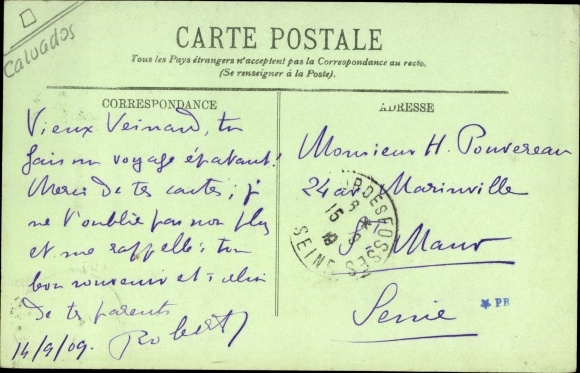 Calvados
CARTE POSTALE
Tous les Pays étrangers n'acceptent pas la Correspondance au recto.
(Se renseigner à la Poste).
CORRESPONDANCE
Vieux Veinard, tu
fais un voyage épatant!
Merci de tes cartes; je
ne t'oublie pas non plus
et me rappelle à ton
bon souvenir et à celui
de tes parents
Robert
14/9/09.
ADRESSE
Monsieur H. Pouvereau
24 av. Marinville
St Maur
Seine
SEINE
PB